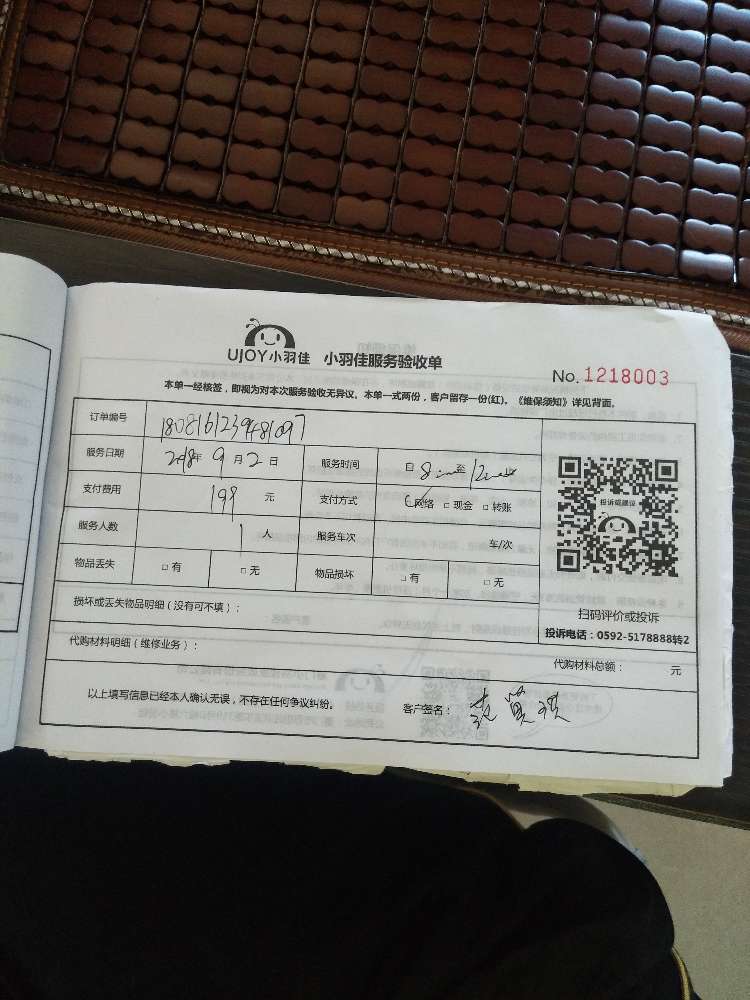 UJOY小羽佳 小羽佳服务验收单
No. 1218003
本单一经核签，即视为对本次服务验收无异议、本单一式两份，客户留存一份(红)。《维保须知》详见背面。
订单编号 1808161239481097
服务日期 2018年 9月2日 服务时间 自 8:00 至 12:00
支付费用 199 元 支付方式 ☑网络 □现金 □转账
服务人数 1 人 服务车次 车/次
物品丢失 □有 □无 物品损坏 □有 □无
投诉或建议
扫码评价或投诉
投诉电话：0592-5178888转2
损坏或丢失物品明细（没有可不填）：
代购材料明细（维修业务）：
代购材料总额： 元
以上填写信息已经本人确认无误，不存在任何争议纠纷。 客户签名：